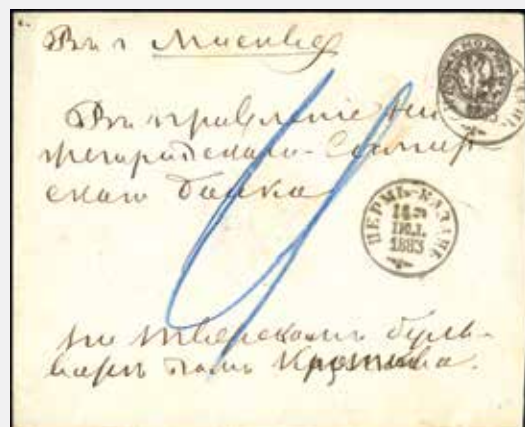 Въ г Москву
Въ правленіе Ни
жегородскаго-Самар
скаго банка
ПЕРМЬ-КАЗАНЬ
14
ІЮЛ.
1883
на Тверскомъ буль-
варѣ домъ